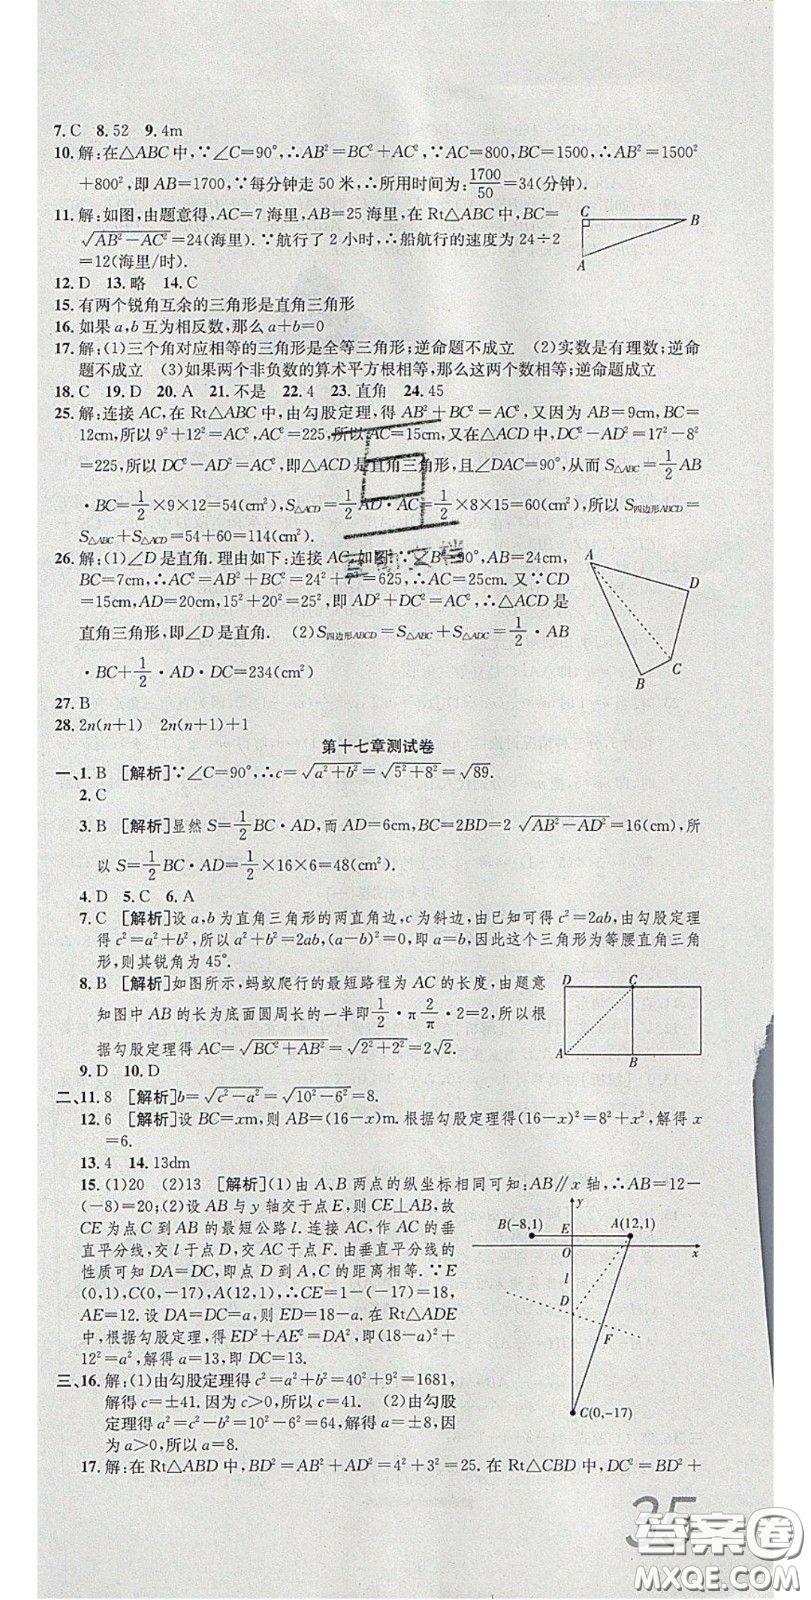 7. C  8. 52  9. 4m
10. 解:在△ABC中,∵∠C=90°,∴AB²=BC²+AC²,∵AC=800,BC=1500,∴AB²=1500²
+800²,即AB=1700,∵每分钟走50米,∴所用时间为:1700/50=34(分钟).
11. 解:如图,由题意得,AC=7海里,AB=25海里,在Rt△ABC中,BC=
√(AB²-AC²)=24(海里).∵航行了2小时,∴船航行的速度为24÷2
=12(海里/时).
C
B
A
12. D  13. 略  14. C
15. 有两个锐角互余的三角形是直角三角形
16. 如果a,b互为相反数,那么a+b=0
17. 解:(1)三个角对应相等的三角形是全等三角形;逆命题不成立  (2)实数是有理数;逆命
题不成立  (3)如果两个非负数的算术平方根相等,那么这两个数相等;逆命题成立
18. C  19. D  20. A  21. 不是  22. 4  23. 直角  24. 45
25. 解:连接AC,在Rt△ABC中,由勾股定理,得AB²+BC²=AC²,又因为AB=9cm,BC=
12cm,所以9²+12²=AC²,AC²=225,所以AC=15cm,又在△ACD中,DC²-AD²=17²-8²
=225,所以DC²-AD²=AC²,即△ACD是直角三角形,且∠DAC=90°,从而S△ABC=1/2AB
·BC=1/2×9×12=54(cm²),S△ACD=1/2AD·AC=1/2×8×15=60(cm²),所以S四边形ABCD=
S△ABC+S△ACD=54+60=114(cm²).
26. 解:(1)∠D是直角.理由如下:连接AC,如图,∵∠B=90°,AB=24cm,
BC=7cm,∴AC²=AB²+BC²=24²+7²=625,∴AC=25cm.又∵CD
=15cm,AD=20cm,15²+20²=25²,即AD²+DC²=AC²,∴△ACD是
直角三角形,即∠D是直角.  (2)S四边形ABCD=S△ABC+S△ADC=1/2·AB
·BC+1/2·AD·DC=234(cm²)
A
D
C
B
27. B
28. 2n(n+1)  2n(n+1)+1
第十七章测试卷
一、1. B [解析]∵∠C=90°,∴c=√(a²+b²)=√(5²+8²)=√89.
2. C
3. B [解析]显然S=1/2BC·AD,而AD=6cm,BC=2BD=2 √(AB²-AD²)=16(cm),所
以S=1/2BC·AD=1/2×16×6=48(cm²).
4. D  5. C  6. A
7. C [解析]设a,b为直角三角形的两直角边,c为斜边,由已知可得c²=2ab,由勾股定理
得c²=a²+b²,所以a²+b²=2ab,(a-b)²=0,即a=b,因此这个三角形为等腰直角三角
形,则其锐角为45°.
8. B [解析]如图所示,蚂蚁爬行的最短路程为AC的长度,由题意
知图中AB的长为底面圆周长的一半即1/2·π·2/π·2=2,所以根
据勾股定理得AC=√(BC²+AB²)=√(2²+2²)=2√2.
D
C
A
B
9. D  10. D
二、11. 8 [解析]b=√(c²-a²)=√(10²-6²)=8.
12. 6 [解析]设BC=xm,则AB=(16-x)m.根据勾股定理得(16-x)²=8²+x²,解得x
=6.
13. 4  14. 13dm
15. (1)20  (2)13 [解析](1)由A、B两点的纵坐标相同可知:AB∥x轴,∴AB=12-
(-8)=20;(2)设AB与y轴交于点E,则CE⊥AB,故
CE为点C到AB的最短公路l.连接AC,作AC的垂
直平分线,交l于点D,交AC于点F.由垂直平分线的
性质可知DA=DC,即点D到A,C的距离相等.∵E
(0,1),C(0,-17),A(12,1),∴CE=1-(-17)=18,
AE=12.设DA=DC=a,则ED=18-a.在Rt△ADE
中,根据勾股定理,得ED²+AE²=DA²,即(18-a)²+
12²=a²,解得a=13,即DC=13.
y
B(-8,1)
E
A(12,1)
O
x
l
D
F
C(0,-17)
三、16. 解:(1)由勾股定理得c²=a²+b²=40²+9²=1681,
解得c=±41.因为c>0,所以c=41.  (2)由勾股
定理得a²=c²-b²=10²-6²=64,解得a=±8,因
为a>0,所以a=8.
17. 解:在Rt△ABD中,BD²=AB²+AD²=4²+3²=25.在Rt△CBD中,DC²=BD²+
35
答案圈
MXQE.COM